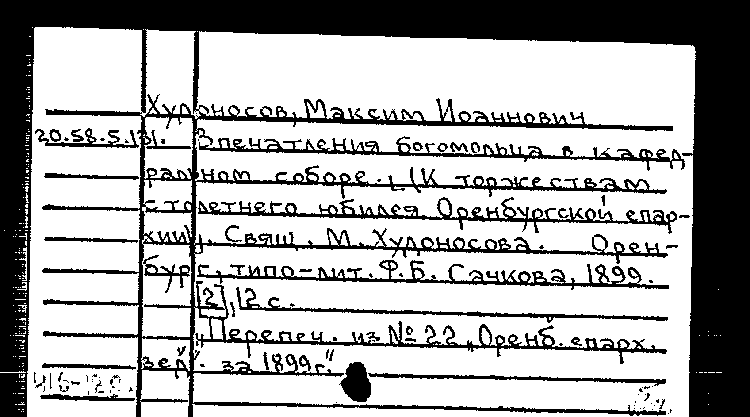 Худоносов, Максим Иоаннович
20.58.5.131. Впечатления богомольца в кафед-
ральном соборе. [(К торжествам
столетнего юбилея Оренбургской епар-
хии)]. Свящ. М. Худоносова. Орен-
бург, типо-лит. Ф.Б. Сачкова, 1899.
[2], 12 с.
"Перепеч. из № 22 „Оренб. епарх.
вед". за 1899г."